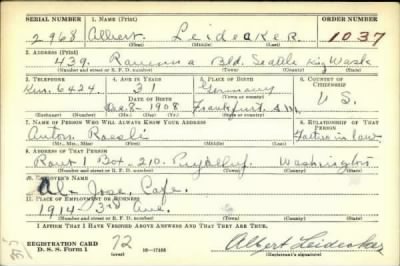 SERIAL NUMBER 1. NAME (Print) ORDER NUMBER
2968 Albert Leidecker 1037
(First) (Middle) (Last)
2. ADDRESS (Print)
439. Ravenna Bld. Seattle King Wash
(Number and street or R. F. D. number) (Town) (County) (State)
3. TELEPHONE 4. AGE IN YEARS 5. PLACE OF BIRTH 6. COUNTRY OF CITIZENSHIP
Ken. 6424. 31 Germany
DATE OF BIRTH
Dec. 8 - 1908 Frankfurt a/M U S.
(Exchange) (Number) (Mo.) (Day) (Yr.) (State or country)
7. NAME OF PERSON WHO WILL ALWAYS KNOW YOUR ADDRESS 8. RELATIONSHIP OF THAT PERSON
Anton Roesli Father in law
(Mr., Mrs., Miss) (First) (Middle) (Last)
9. ADDRESS OF THAT PERSON
Rout 1 Box 210. Puyallup. Washington
(Number and street or R. F. D. number) (Town) (County) (State)
10. EMPLOYER'S NAME
Al- Jose. Cafe.
11. PLACE OF EMPLOYMENT OR BUSINESS
1914 - 3rd Ave.
(Number and street or R. F. D. number) (Town) (County) (State)
I AFFIRM THAT I HAVE VERIFIED ABOVE ANSWERS AND THAT THEY ARE TRUE.
REGISTRATION CARD
D. S. S. Form 1 (over) 16—17105 Albert Leidecker
(Registrant's signature)